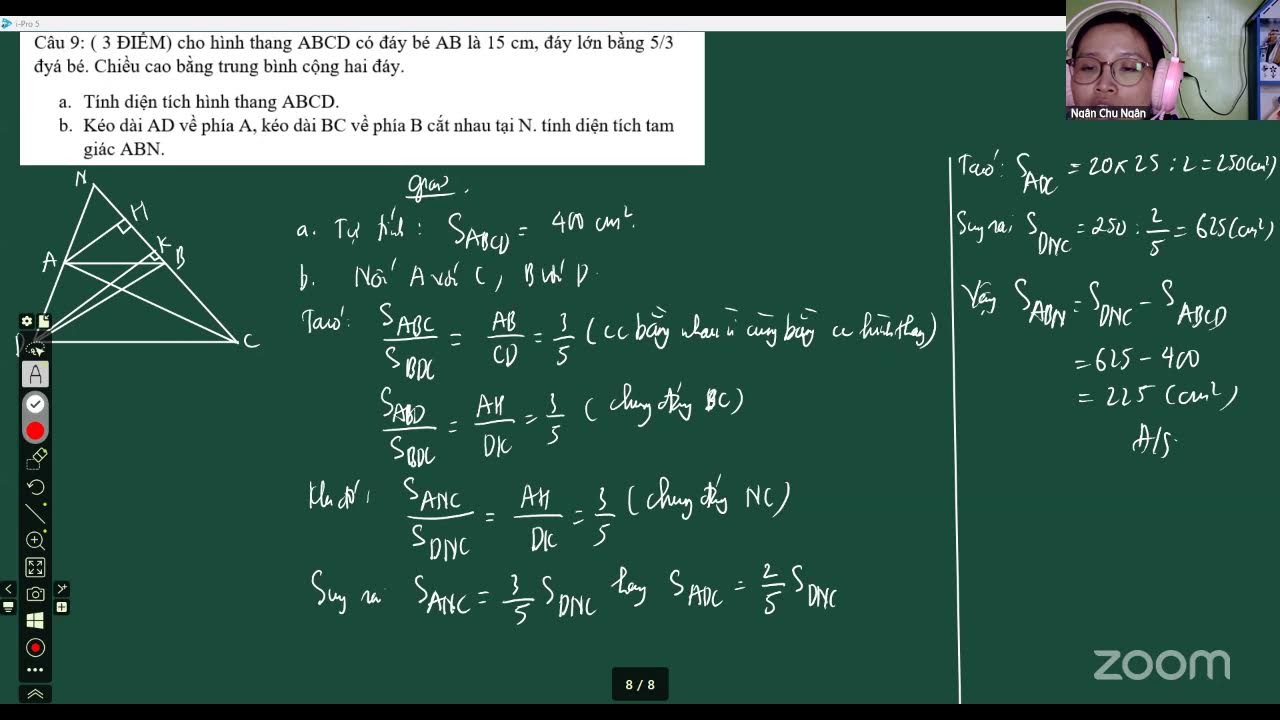 i-Pro 5
Câu 9: ( 3 ĐIỂM) cho hình thang ABCD có đáy bé AB là 15 cm, đáy lớn bằng 5/3
đyá bé. Chiều cao bằng trung bình cộng hai đáy.
a. Tính diện tích hình thang ABCD.
b. Kéo dài AD về phía A, kéo dài BC về phía B cắt nhau tại N. tính diện tích tam
giác ABN.
Ngân Chu Ngân
N
H
K
A B
D C
giải.
a. Tự tính: S_ABCD = 400 cm².
b. Nối A với C, B với D.
Ta có: S_ABC / S_BDC = AB / CD = 3/5 (cc bằng nhau vì cùng bằng cc hình thang)
S_ABD / S_BDC = AH / DK = 3/5 (chung đáy BC)
Khi đó: S_ANC / S_DNC = AH / DK = 3/5 (chung đáy NC)
Suy ra S_ANC = 3/5 S_DNC hay S_ADC = 2/5 S_DNC
Ta có: S_ADC = 20 x 25 : 2 = 250 (cm²)
Suy ra: S_DNC = 250 : 2/5 = 625 (cm²)
Vậy S_ABN = S_DNC - S_ABCD
= 625 - 400
= 225 (cm²)
Đ/S.
8 / 8
zoom